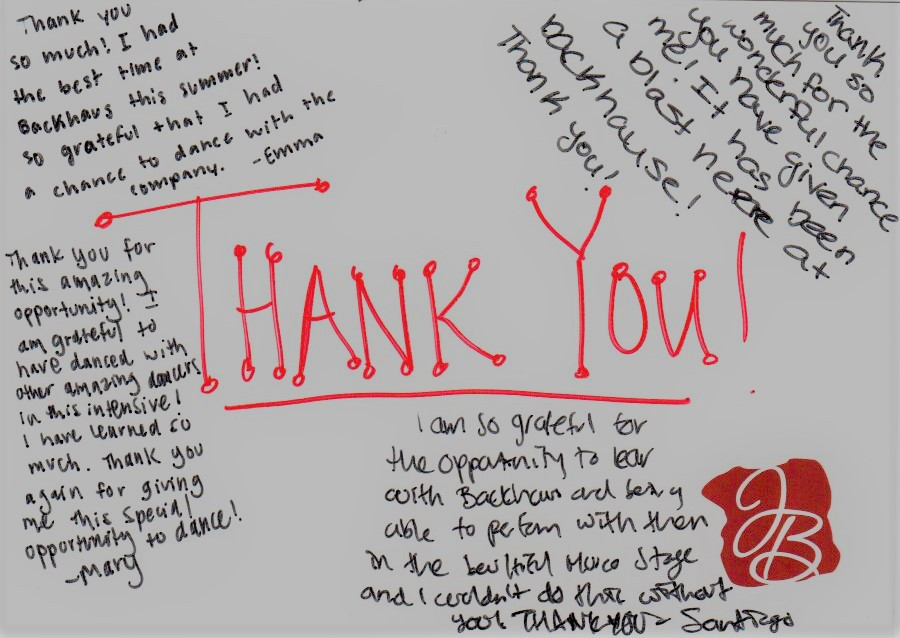 Thank you
so much! I had
the best time at
Backhaus this summer!
so grateful that I had
a chance to dance with the
company. -Emma
Thank
you so
much for the
wonderful chance
you have given
me! It has been
a blast here at
backhause!
Thank you!
THANK YOU!
Thank you for
this amazing
opportunity! I
am grateful to
have danced with
other amazing dancers
in this intensive!
I have learned so
much. Thank you
again for giving
me this special
opportunity to dance!
-Mary
I am so grateful for
the opportunity to lear
with Backhaus and being
able to perform with them
in the beautiful Musco Stage
and I couldn't do this without
you! THANK YOU - Santiago
JB